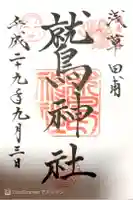 浅草 田甫
鷲神社
平成二十九年九月三日